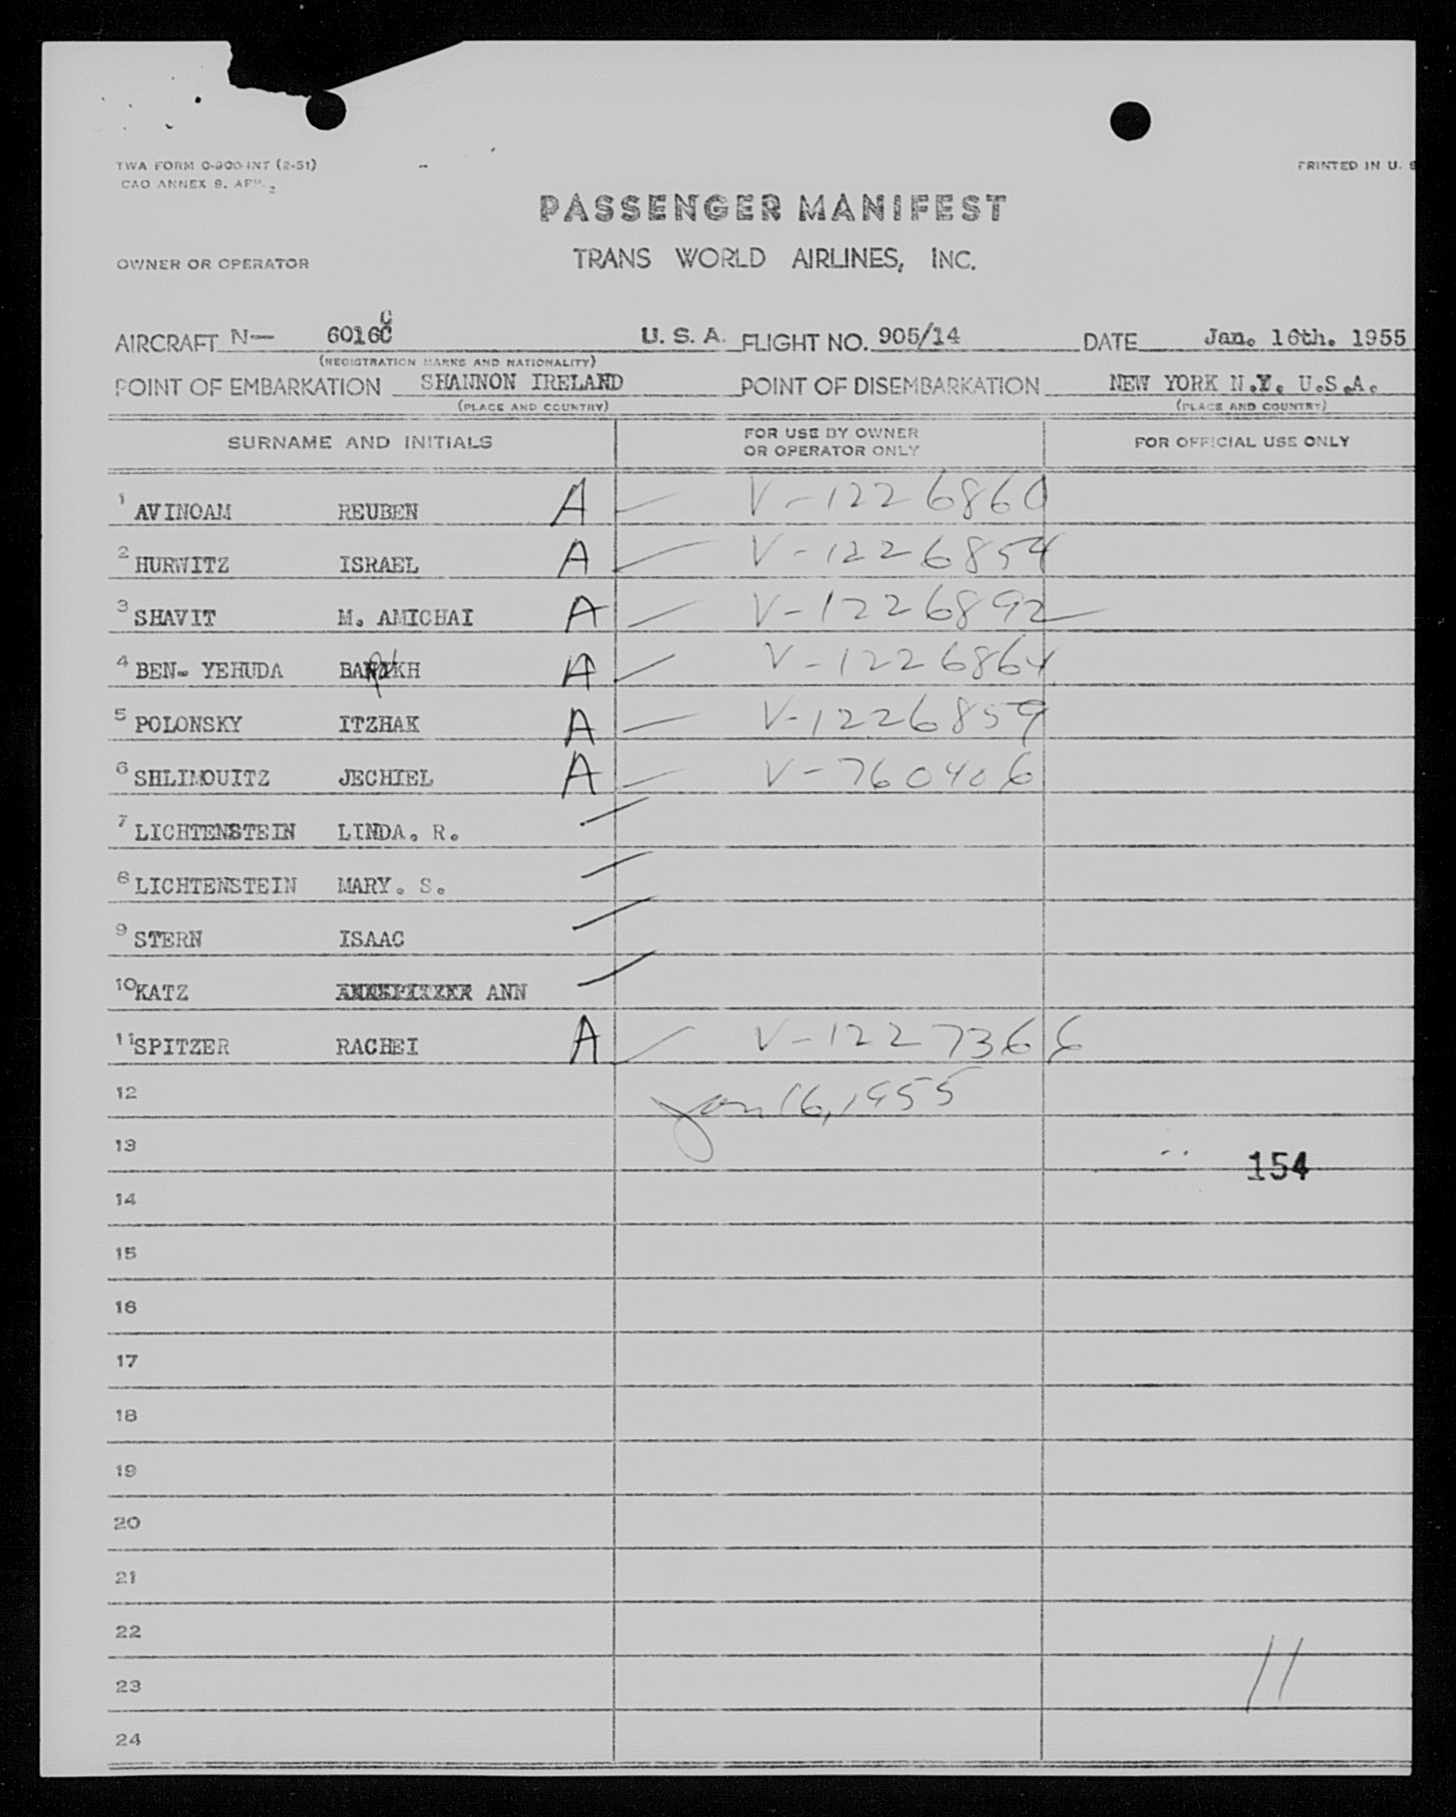 TWA FORM 0-900-INT (2-51)
PRINTED IN U. S
PASSENGER MANIFEST
OWNER OR OPERATOR
TRANS WORLD AIRLINES, INC.
AIRCRAFT N— 6016C U. S. A. FLIGHT NO. 905/14 DATE Jan. 16th. 1955
(REGISTRATION MARKS AND NATIONALITY)
POINT OF EMBARKATION SHANNON IRELAND POINT OF DISEMBARKATION NEW YORK N.Y. U.S.A.
(PLACE AND COUNTRY) (PLACE AND COUNTRY)
SURNAME AND INITIALS FOR USE BY OWNER OR OPERATOR ONLY FOR OFFICIAL USE ONLY
1 AVINOAM REUBEN A V-1226860
2 HURWITZ ISRAEL A V-1226854
3 SHAVIT M. AMICHAI A V-1226892
4 BEN- YEHUDA A V-1226864
5 POLONSKY ITZHAK A V-1226859
6 SHLIMOUITZ JECHIEL A V-760406
7 LICHTENSTEIN LINDA. R.
8 LICHTENSTEIN MARY. S.
9 STERN ISAAC
10 KATZ ANN
11 SPITZER RACHEI A V-1227366
12 Jan 16, 1955
13
154
14
15
16
17
18
19
20
21
22
23 11
24